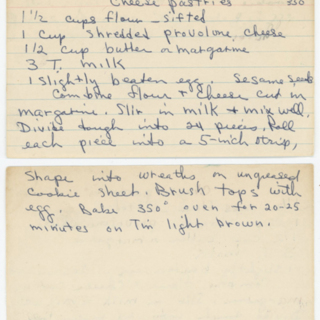 Cheese pastries 350
1 1/2 cups flour - sifted
1 cup shredded provolone cheese
1/2 cup butter or margarine
3 T. milk
1 slightly beaten egg. Sesame seeds
Combine flour & cheese cut in
margarine. Stir in milk & mix well.
Divide dough into 24 pieces, Roll
each piece into a 5-inch strip,
Shape into wreaths on ungreased
cookie sheet. Brush tops with
egg. Bake 350° oven for 20-25
minutes or Till light brown.